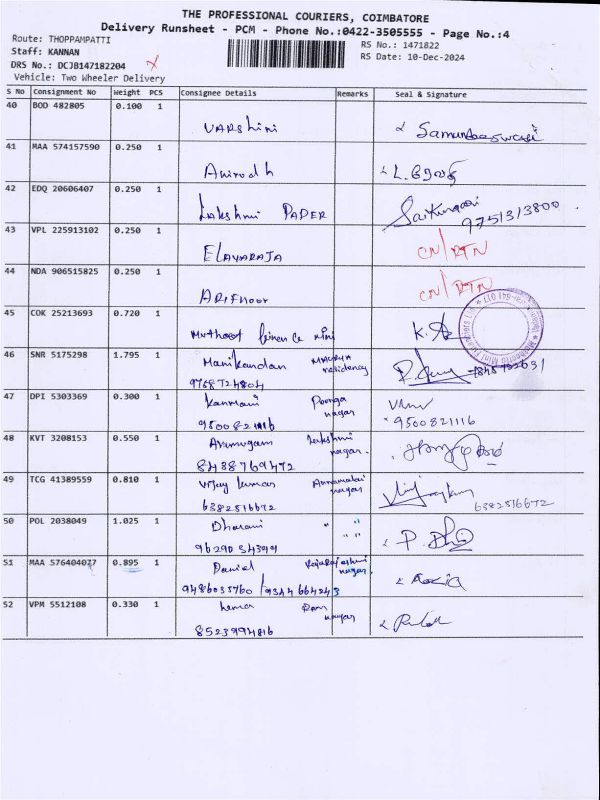 THE PROFESSIONAL COURIERS, COIMBATORE
Delivery Runsheet - PCM - Phone No.:0422-3505555 - Page No.:4
Route: THOPPAMPATTI
RS No.: 1471822
Staff: KANNAN
RS Date: 10-Dec-2024
DRS No.: DCJB147182204 X
Vehicle: Two Wheeler Delivery
S No Consignment No Weight PCS Consignee Details Remarks Seal & Signature
40 BOD 482805 0.100 1
VARshini
41 MAA 574157590 0.250 1
Anirodh
42 EDQ 20606407 0.250 1
Lakshmi PAPER Saikumar 9751313800
43 VPL 225913102 0.250 1
ELAYARAJA CN/RTN
44 NDA 906515825 0.250 1
CN/RTN
45 COK 25213693 0.720 1
Muthoot finance mini
46 SNR 5175298 1.795 1
Manikandan residency
47 DPI 5303369 0.300 1
Kanmani nagar
9500821116 9500821116
48 KVT 3208153 0.550 1
Arumugam Lakshmi nagar.
8438769472
49 TCG 41389559 0.810 1
Vijay kumar Annamalai nagar
6382516672 6382516672
50 POL 2038049 1.025 1
Dharani " "
51 MAA 576404077 0.895 1
Daniel Rajarajeshwari nagar.
52 VPM 5512108 0.330 1
hema Ram nagar
8523994816